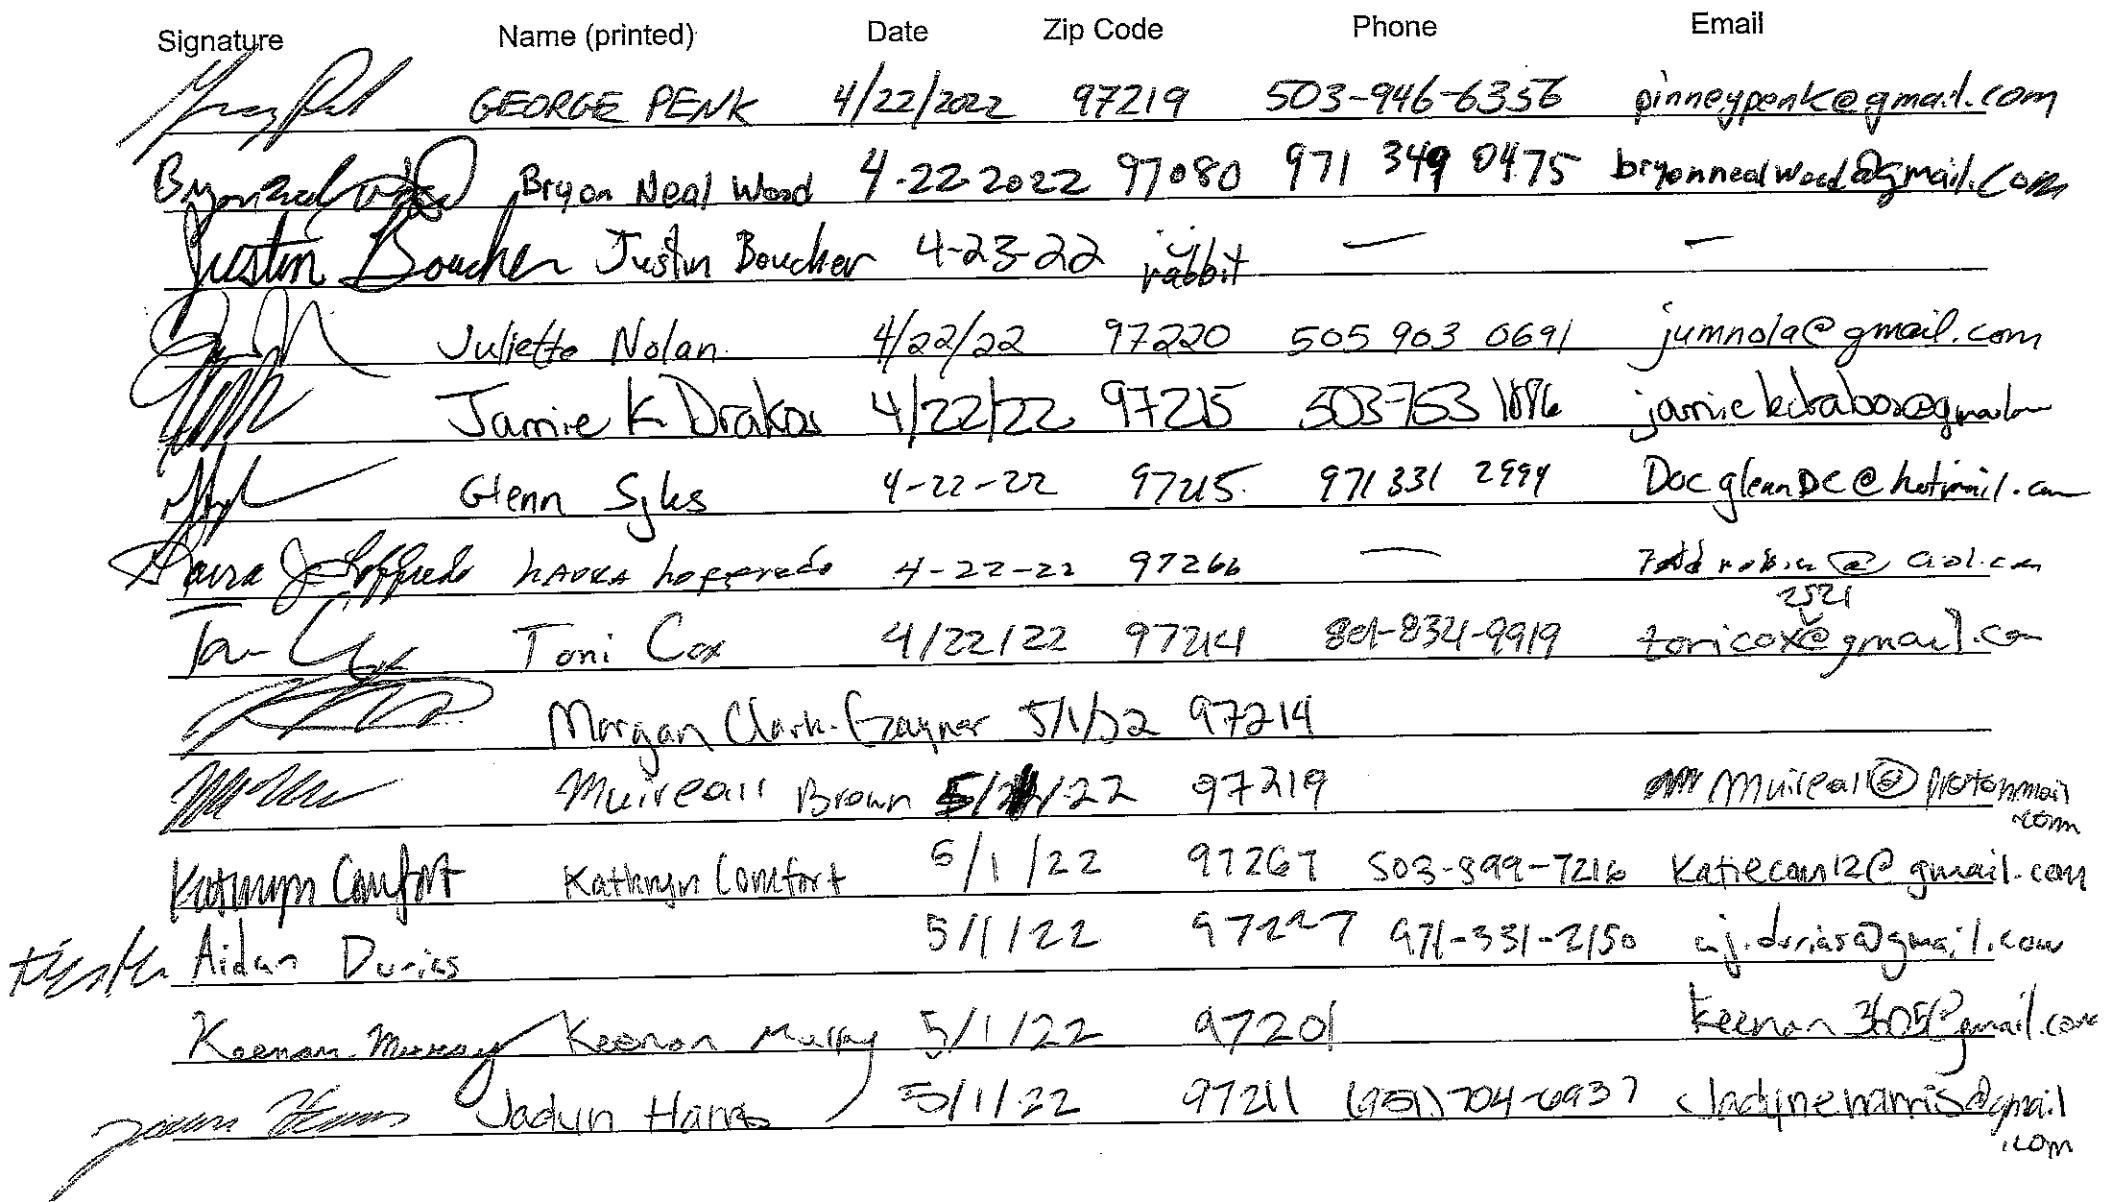 Signature Name (printed) Date Zip Code Phone Email
GEORGE PENK 4/22/2022 97219 503-946-6356 pinneypenk@gmail.com
Bryon Neal Wood 4-22-2022 97080 971 349 0475 bryonnealwood@gmail.com
Justin Boucher Justin Boucher 4-23-22 rabbit — —
Juliette Nolan 4/22/22 97220 505 903 0691 jumnola@gmail.com
Jamie K Drakos 4/22/22 97215 503-753
Glenn Sykes 4-22-22 97215 971 331 2994 DocglennDC@hotmail.com
Laura J Loffredo LAURA Loffredo 4-22-22 97266 —
Toni Cox 4/22/22 97214 801-834-9919 toricox2521@gmail.com
Morgan Clark-Gaynor 5/1/22 97214
Muireall Brown 5/ /22 97219 Muireall@protonmail.com
Kathryn Comfort Kathryn Comfort 5/1/22 97267 503-899-7216 Katiecom12@gmail.com
Aidan Durias 5/1/22 97227 971-331-2150 aj.durias@gmail.com
Keenan Murray Keenan Murray 5/1/22 97201 keenan3605@gmail.com
Jadyn Harris 5/1/22 97211 (951) 704-6937 Jadyneharris@gmail.com